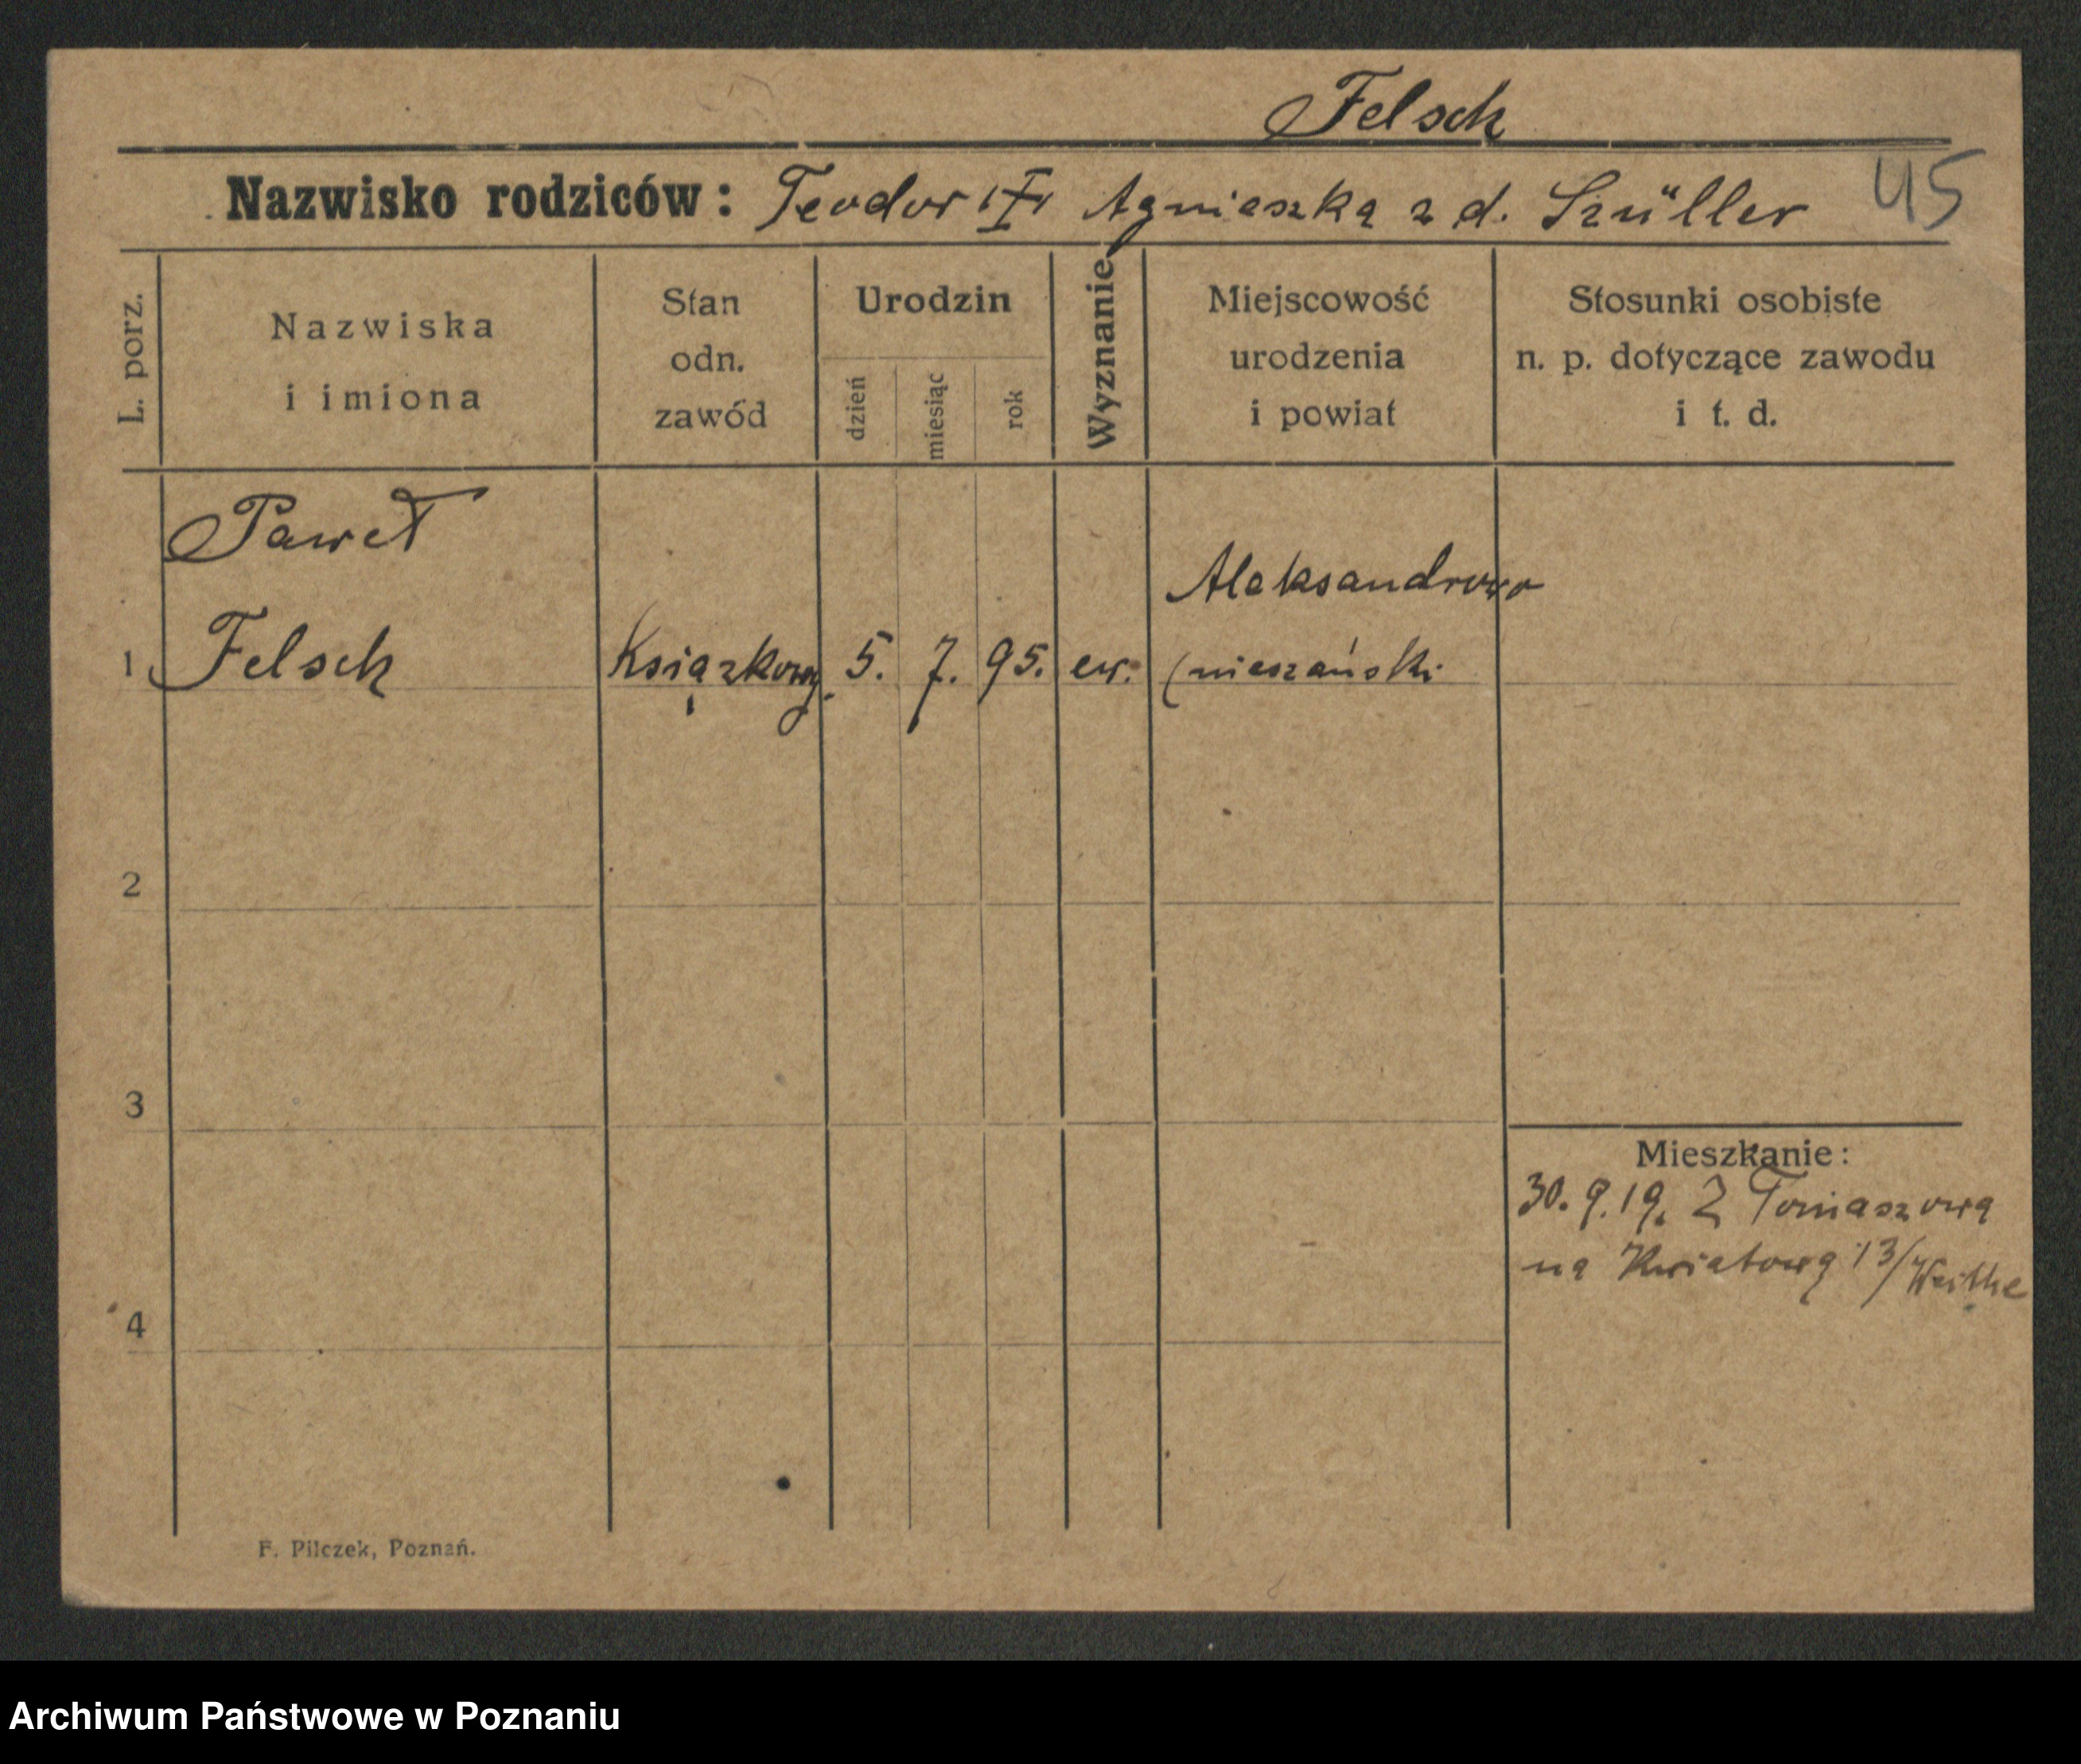 Felsch
Nazwisko rodziców: Teodor Agnieszka z d. Szüller
45
L. porz.
Nazwiska
i imiona
Stan
odn.
zawód
Urodzin
dzień
miesiąc
rok
Wyznanie
Miejscowość
urodzenia
i powiat
Stosunki osobiste
n. p. dotyczące zawodu
i t. d.
Paweł
Aleksandrowo
1 Felsch Książkowy 5. 7. 95. ew. (nieszański
2
3
Mieszkanie:
30. 9. 19. Z Tomaszowa
na Kwiatową 13/
4
F. Pilczek, Poznań.
Archiwum Państwowe w Poznaniu